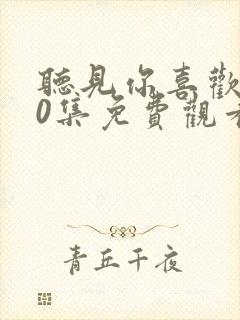 聽見你喜歡
0集免費觀看
青丘千夜